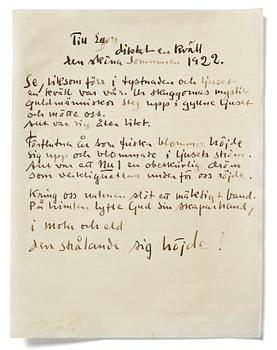 Till Egron
diktat en kväll
den sköna sommaren 1922.
Se, liksom förr i tystnaden och ljuset
en kväll var vår. Ur skuggornas mystik
guldmänniskor steg upp i gyllne ljuset
och mötte oss.
Allt var sig åter likt.
Förflutna år som friska blommor höjde
sig upp och blommade i ljusets ström.
Allt var ett Nu i en obeskrivlig dröm
som verklighetens under för oss röjde.
Kring oss naturen slöt ett mäktigt band.
På himlen lyfte Gud sin skaparhand,
i moln och eld
den strålande sig höjde!